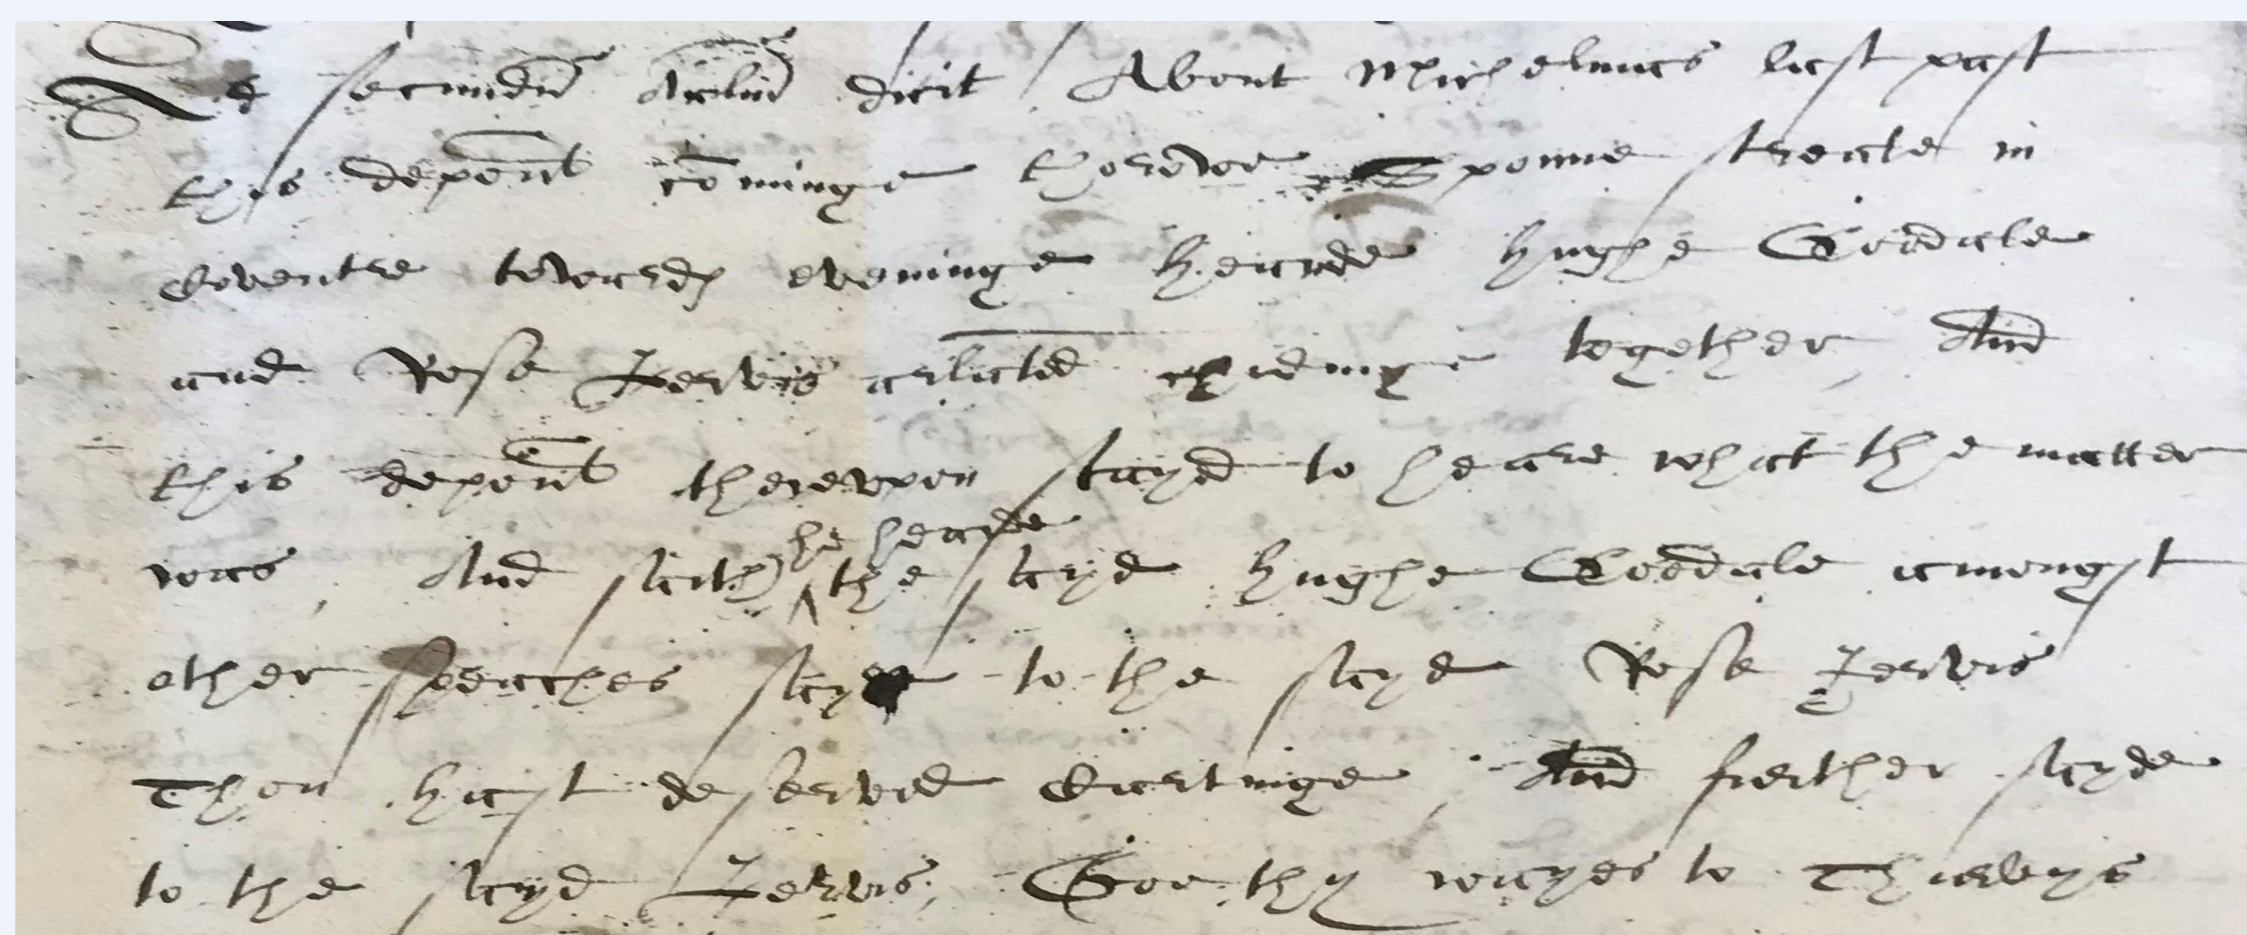 Ad secundu Arlum dicit About Michelmas last past
this depont cominge thorowe Sponne streate in
Coventre towards eveninge hearde hughe Goodale
and Rose Jervis arlated chidinge together, And
this depont therevpon stayd to heare what the matter
was, And saith he hearde the sayd hughe Goodale amongst
other speaches sayd to the sayd Rose Jervis
Thou hast deserved Cartinge, And further sayde
to the sayd Jervis, Goe thy wayes to Tharbys